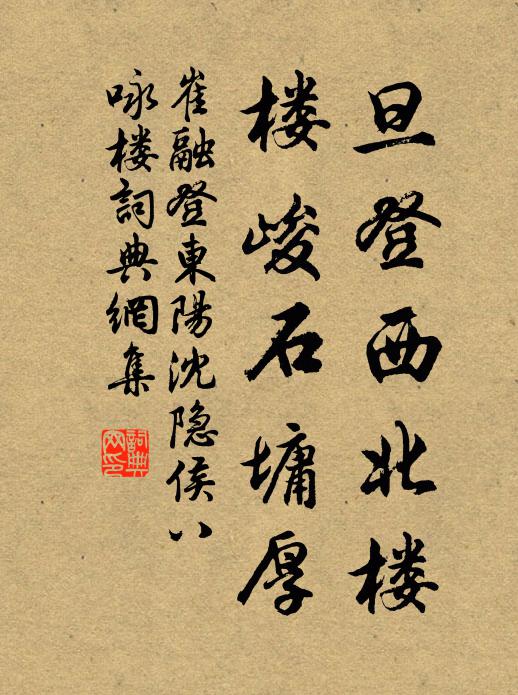 旦登西北楼
楼峻石墉厚
崔融登東陽沈隐侯八
咏楼詞典網集
詞典网印